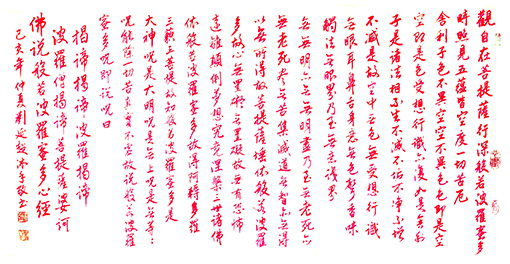 觀自在菩薩行深般若波羅蜜多
時照見五蘊皆空度一切苦厄
舍利子色不異空空不異色色即是空
空即是色受想行識亦復如是舍利
子是諸法相不生不滅不垢不淨不增
不減是故空中無色無受想行識
無眼耳鼻舌身意無色聲香味
觸法無眼界乃至無意識界
無無明亦無無明盡乃至無老死亦
無老死盡無苦集滅道無智亦無得
以無所得故菩提薩埵依般若波羅
多故心無罣礙無罣礙故無有恐怖
遠離顛倒夢想究竟涅槃三世諸佛
依般若波羅蜜多故得阿耨多羅
三藐三菩提故知般若波羅蜜多是
大神咒是大明咒是無上咒是無等等
咒能除一切苦真實不虛故說般若波羅
蜜多咒即說咒曰
揭諦揭諦波羅揭諦
波羅僧揭諦菩提薩婆訶
佛說般若波羅蜜多心經
己亥年仲夏